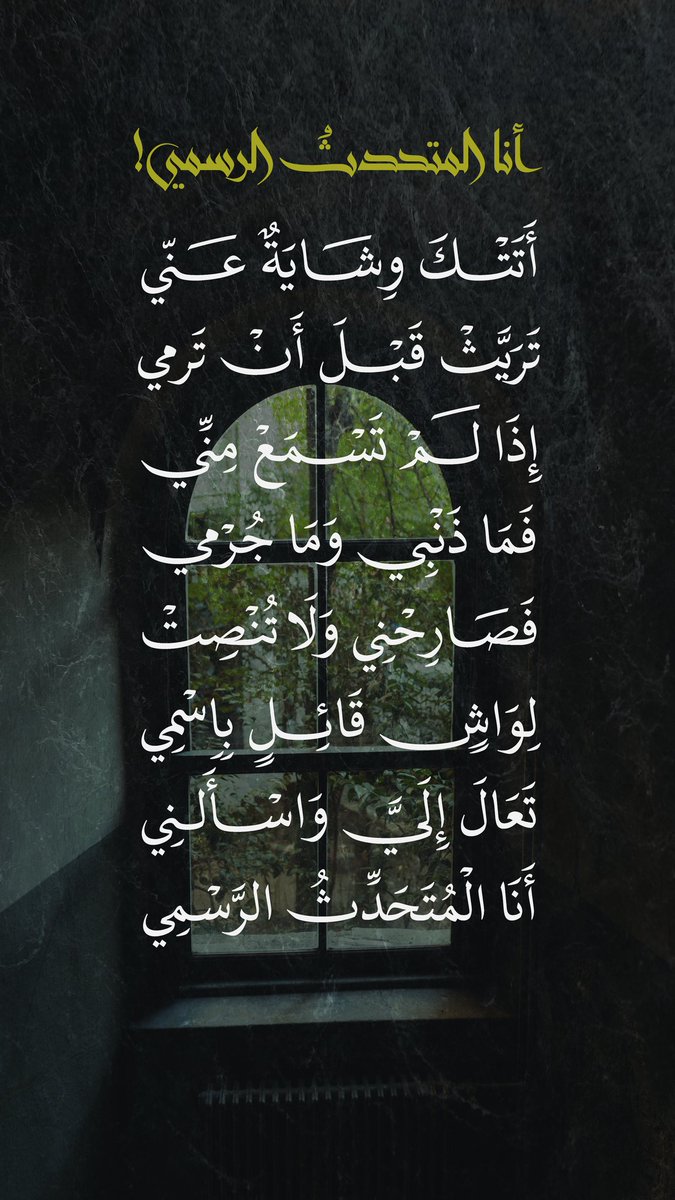 أنا المتحدثُ الرسمي!
أَتَتْكَ وِشَايَةٌ عَنّي
تَرَيَّثْ قَبْلَ أَنْ تَرمي
إِذَا لَمْ تَسْمَعْ مِنِّي
فَمَا ذَنْبِي وَمَا جُرْمي
فَصَارِحْنِي وَلَا تُنْصِتْ
لِوَاشٍ قَائِلٍ بِاِسْمِي
تَعَالَ إِلَيَّ وَاسْأَلنِي
أَنَا الْمُتَحَدِّثُ الرَّسْمِي